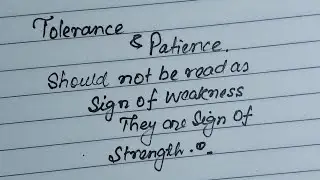 Tolerance
& Patience.
Should not be read as
Sign of weakness
They are Sign of
Strength.